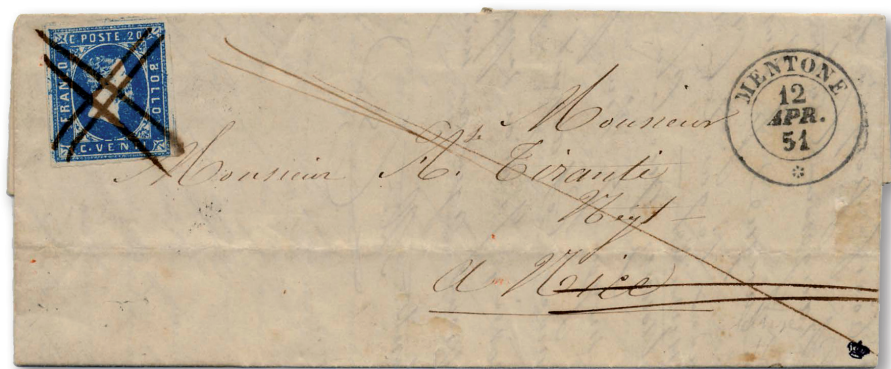 C. POSTE. 20
FRANCO
BOLLO
C. VENTI
MENTONE
12
APR.
51
Monsieur
Monsieur A. Tiranti
Negt
a Nice